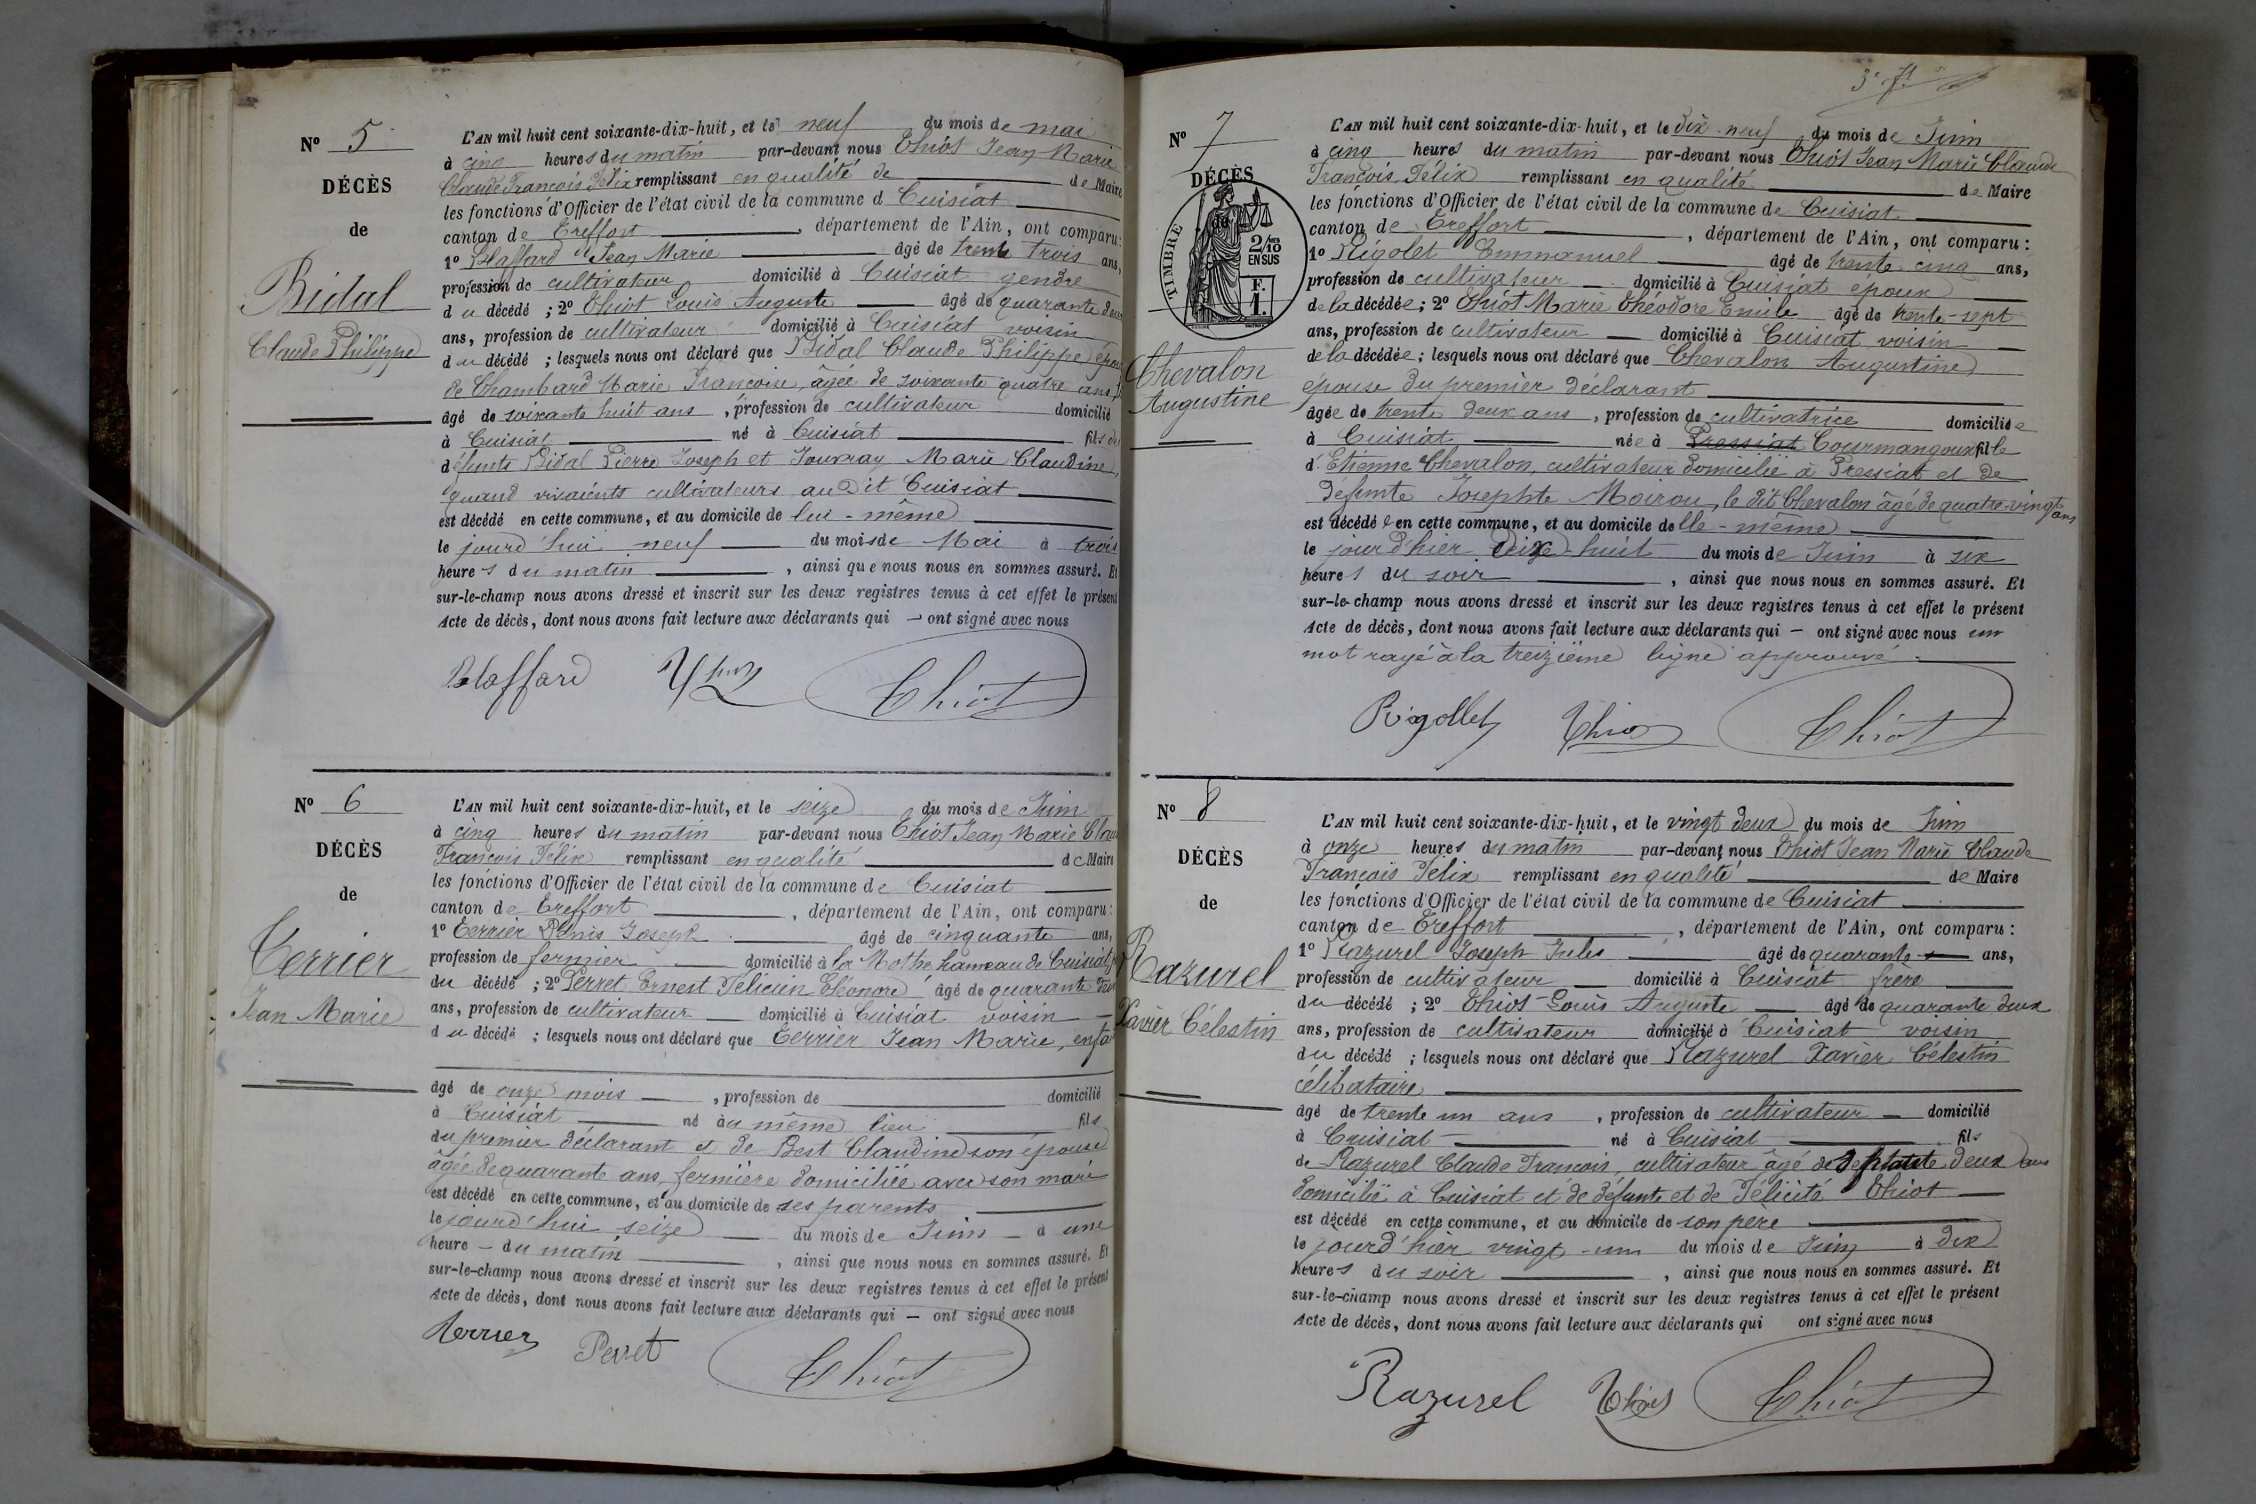 Nº 5
DÉCÈS
de
Bidal
Claude Philippe
L'AN mil huit cent soixante-dix-huit, et le neuf du mois de mai
à cinq heures du matin par-devant nous Thiot Jean Marie
Claude François Félix remplissant en qualité de de Maire
les fonctions d'Officier de l'état civil de la commune d Cuisiat
canton de Treffort, département de l'Ain, ont comparu :
1º Blaffard Jean Marie âgé de trente trois ans,
profession de cultivateur domicilié à Cuisiat gendre
du décédé ; 2º Thiot Louis Auguste âgé de quarante deux
ans, profession de cultivateur domicilié à Cuisiat voisin
du décédé ; lesquels nous ont déclaré que Bidal Claude Philippe
de Chambard Marie Françoise, âgée de soixante quatre ans
âgé de soixante huit ans, profession de cultivateur domicilié
à Cuisiat né à Cuisiat fils de
défunts Bidal Pierre Joseph et Jouvray Marie Claudine,
quand vivaients cultivateurs au dit Cuisiat
est décédé en cette commune, et au domicile de lui-même
le jourd'hui neuf du mois de Mai à trois
heures du matin, ainsi que nous nous en sommes assuré. Et
sur-le-champ nous avons dressé et inscrit sur les deux registres tenus à cet effet le présent
Acte de décès, dont nous avons fait lecture aux déclarants qui — ont signé avec nous
Blaffard Thiot
Nº 6
DÉCÈS
de
Terrier
Jean Marie
L'AN mil huit cent soixante-dix-huit, et le seize du mois de Juin
à cinq heures du matin par-devant nous Thiot Jean Marie Claude
François Félix remplissant en qualité de Maire
les fonctions d'Officier de l'état civil de la commune de Cuisiat
canton de Treffort, département de l'Ain, ont comparu :
1º Terrier Denis Joseph âgé de cinquante ans,
profession de fermier domicilié à la Mothe hameau de Cuisiat
du décédé ; 2º Perret Ernest Félicien Eléonore âgé de quarante deux
ans, profession de cultivateur domicilié à Cuisiat voisin
du décédé ; lesquels nous ont déclaré que Terrier Jean Marie, enfa
âgé de onze mois, profession de domicilié
à Cuisiat né au même lieu fils
du premier déclarant et de Best Claudine son épouse
âgée de quarante ans, fermière domiciliée avec son mari
est décédé en cette commune, et au domicile de ses parents
le jourd'hui seize du mois de Juin à une
heure du matin, ainsi que nous nous en sommes assuré. Et
sur-le-champ nous avons dressé et inscrit sur les deux registres tenus à cet effet le présent
Acte de décès, dont nous avons fait lecture aux déclarants qui — ont signé avec nous
Terrier Perret Thiot
Nº 7
DÉCÈS
de
TIMBRE
2/10
EN SUS
F.
1.
Chevalon
Augustine
L'AN mil huit cent soixante-dix-huit, et le dix-neuf du mois de Juin
à cinq heures du matin par-devant nous Thiot Jean Marie Claude
François Félix remplissant en qualité de Maire
les fonctions d'Officier de l'état civil de la commune de Cuisiat
canton de Treffort, département de l'Ain, ont comparu :
1º Rigolet Emmanuel âgé de trente cinq ans,
profession de cultivateur domicilié à Cuisiat époux
de la décédée ; 2º Thiot Marie Théodore Emile âgé de trente-sept
ans, profession de cultivateur domicilié à Cuisiat voisin
de la décédée ; lesquels nous ont déclaré que Chevalon Augustine
épouse du premier déclarant
âgée de trente deux ans, profession de cultivatrice domiciliée
à Cuisiat née à Pressiat Courmangoux fille
d'Etienne Chevalon, cultivateur domicilié à Pressiat et de
défunte Josephte Moirou, le dit Chevalon âgé de quatre-vingt ans
est décédée en cette commune, et au domicile delle-même
le jour d'hier dixe-huit du mois de Juin à six
heures du soir, ainsi que nous nous en sommes assuré. Et
sur-le-champ nous avons dressé et inscrit sur les deux registres tenus à cet effet le présent
Acte de décès, dont nous avons fait lecture aux déclarants qui — ont signé avec nous un
mot rayé à la treizième ligne approuvé.
Rigollet Thiot Thiot
Nº 8
DÉCÈS
de
Razurel
Xavier Célestin
L'AN mil huit cent soixante-dix-huit, et le vingt deux du mois de Juin
à onze heures du matin par-devant nous Thiot Jean Marie Claude
François Félix remplissant en qualité de Maire
les fonctions d'Officier de l'état civil de la commune de Cuisiat
canton de Treffort, département de l'Ain, ont comparu :
1º Razurel Joseph Jules âgé de quarante ans,
profession de cultivateur domicilié à Cuisiat frère
du décédé ; 2º Thiot Louis Auguste âgé de quarante deux
ans, profession de cultivateur domicilié à Cuisiat voisin
du décédé ; lesquels nous ont déclaré que Razurel Xavier Célestin
célibataire
âgé de trente un ans, profession de cultivateur domicilié
à Cuisiat né à Cuisiat fils
de Razurel Claude François, cultivateur âgé de deux ans
domicilié à Cuisiat et de défunte et de Félicité Thiot
est décédé en cette commune, et au domicile de son père
le jourd'hier vingt-un du mois de Juin à dix
heures du soir, ainsi que nous nous en sommes assuré. Et
sur-le-champ nous avons dressé et inscrit sur les deux registres tenus à cet effet le présent
Acte de décès, dont nous avons fait lecture aux déclarants qui ont signé avec nous
Razurel Thiot Thiot